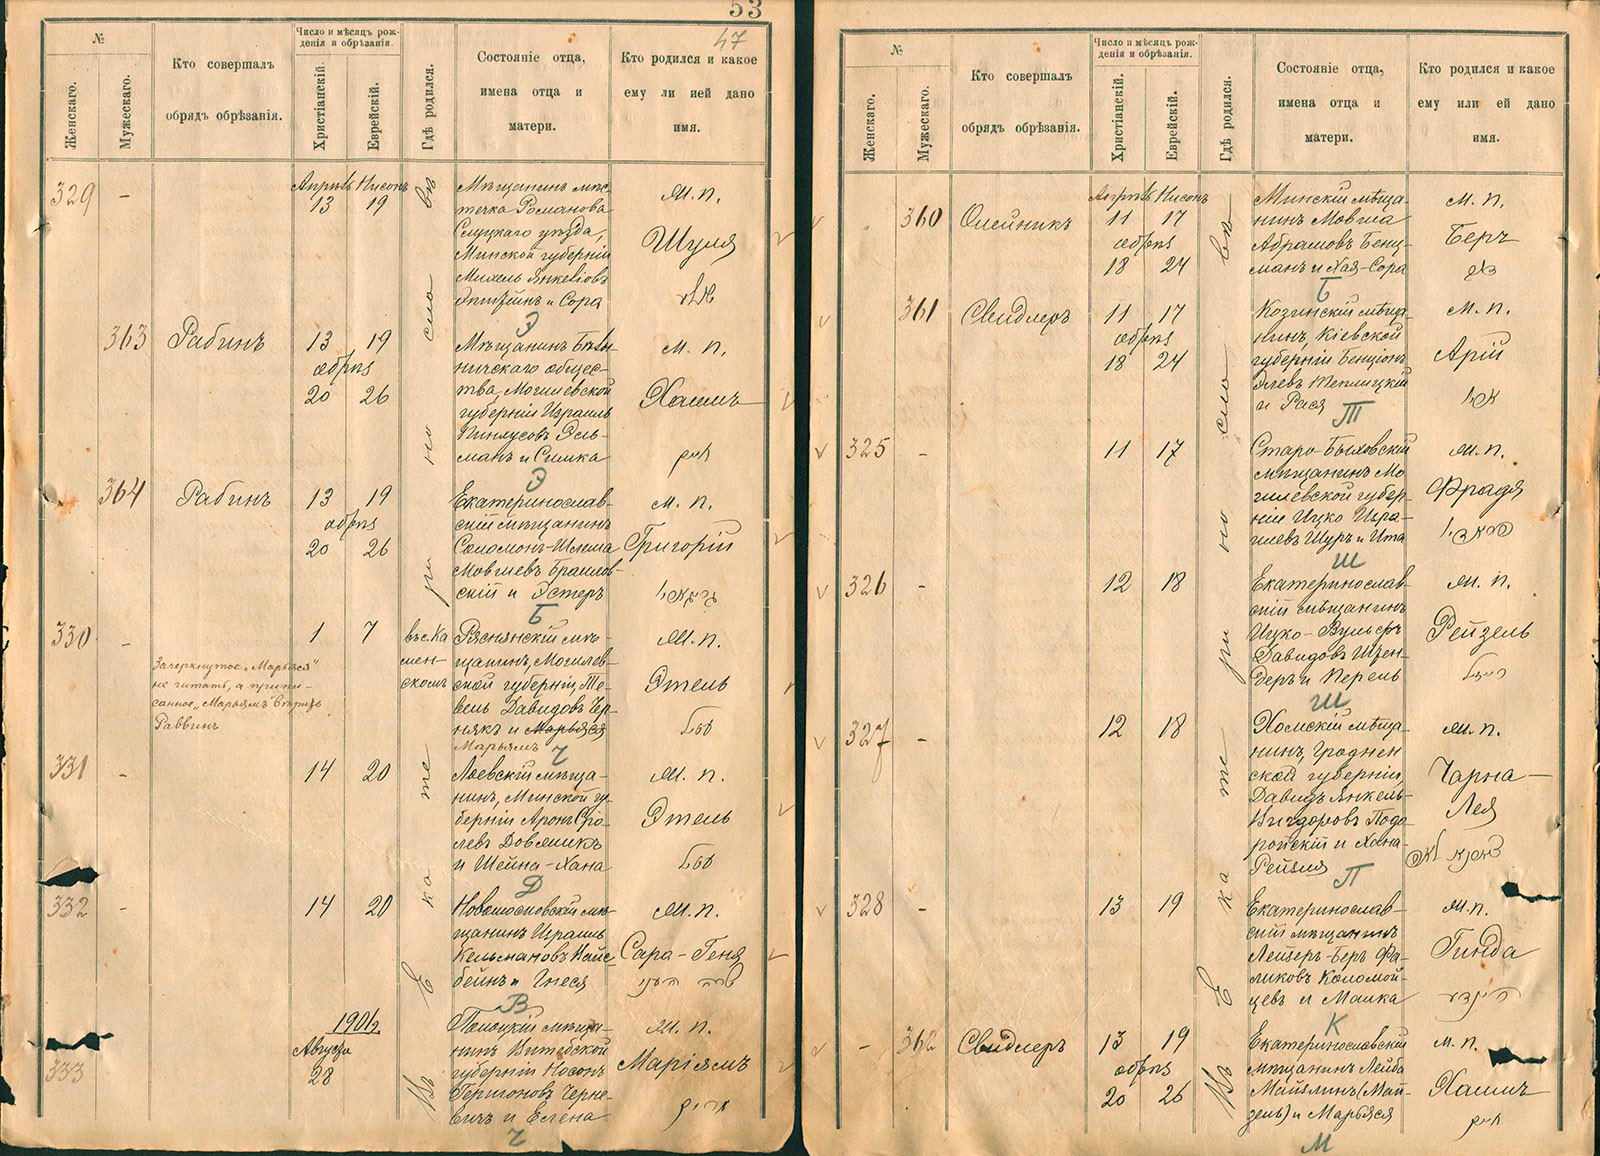 53
47
№
Женскаго.
Мужескаго.
Кто совершалъ
обрядъ обрѣзанія.
Число и мѣсяцъ рож-
денія и обрѣзанія.
Христіанскій.
Еврейскій.
Гдѣ родился.
Состояніе отца,
имена отца и
матери.
Кто родился и какое
ему ли ией дано
имя.
329
-
Апрѣль Нисонъ
13 19
Мѣщанинъ мѣс-
течка Романова
Слуцкаго уѣзда,
Минской губерніи
Михель Янкелiовъ
Эпштейнъ и Сора
Э
м. п.
Шуля
363
Рабинъ
13 19
обрѣз
20 26
ничскаго общес-
тва, Могилевской
губерніи Израиль
Пинхусовъ Эль-
манъ и Симка
Э
м. п.
Хаимъ
חיים
364
Рабинъ
13 19
обрѣз
20 26
Екатеринослав-
скій мѣщанинъ
Соломонъ-Шлема
Мовшевъ Браилов-
скій и Эстеръ
Б
м. п.
Григорій
330
-
Зачеркнутое „Марьяся"
не читать, а припи-
санное „Марьямъ" вѣрить
Раввинъ
1 7
въ с. Ка
мен-
скомъ
Ряснянскій мѣ-
щанинъ, Могилев-
ской губерніи, Те-
вель Давидовъ Чер-
някъ и Марьяся
Марьямъ
Ч
м. п.
Этель
331
-
14 20
Лоевскій мѣща-
нинъ, Минской гу-
берніи Аронъ Сро-
левъ Довжикъ
и Шейна-Хана
Д
м. п.
Этель
332
-
14 20
щанинъ Израиль
Кельмановъ Вайс-
бейнъ и Гнеся
В
м. п.
Сара-Геня
שרה העני
333
1901г.
Августа
28
Полоцкій мѣща-
нинъ Витебской
губерніи Носонъ
Гершоновъ Черне-
вичъ и Елена
Ч
м. п.
Маріямъ
מרים
Въ Екатеринославѣ
№
Женскаго.
Мужескаго.
Кто совершалъ
обрядъ обрѣзанія.
Число и мѣсяцъ рож-
денія и обрѣзанія.
Христіанскій.
Еврейскій.
Гдѣ родился.
Состояніе отца,
имена отца и
матери.
Кто родился и какое
ему или ей дано
имя.
360
Олейникъ
Апрѣль Нисонъ
11 17
обрѣз
18 24
Минскій мѣща-
нинъ Мовша
Абрамовъ Бенц-
манъ и Хая-Сора
Б
м. п.
Беръ
361
Свидлеръ
11 17
обрѣз
18 24
Козинскій мѣща-
нинъ, Кіевской
губерніи Бенціонъ
Элевъ Теплицкій
и Рася
Т
м. п.
Арій
325
-
11 17
Старо-Быховскій
мѣщанинъ Мо-
гилевской губер-
ніи Ицко Изра-
илевъ Шуръ и Ита
Ш
м. п.
Фрадя
326
-
12 18
Екатеринослав-
скій мѣщанинъ
Ицко-Вульфъ
Давидовъ Шзен-
деръ и Перель
Ш
м. п.
Рейзель
327
-
12 18
Хомскій мѣща-
нинъ, Гроднен
ской губерніи,
Давидъ Янкель-
Вигдоровъ Подо-
ройскій и Хана-
Рейзля
П
м. п.
Чарна-
Лея
328
-
13 19
Екатеринослав-
скій мѣщанинъ
Лейзеръ-Беръ Фа-
ликовъ Коломой-
цевъ и Малка
К
м. п.
Гинда
הינדע
-
362
Свидлеръ
13 19
обрѣз
20 26
Екатеринославскій
мѣщанинъ Лейба
Майзлинъ (Май-
зель) и Марьяся
М
м. п.
Хаимъ
חיים
Въ Екатеринославѣ